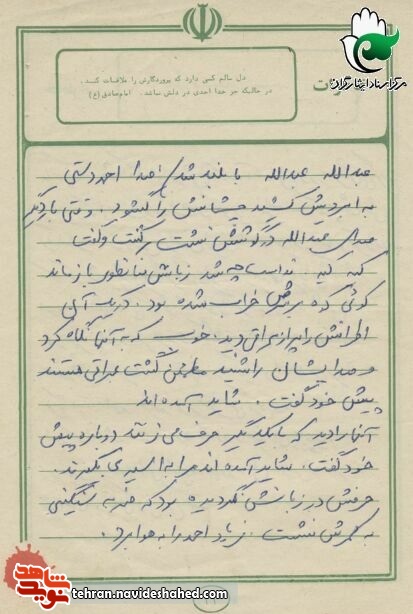 دل سالم کسی دارد که پروردگارش را ملاقات کند.
در حالیکه جز خدا احدی در دلش نباشد. امام صادق (ع)
مرکز اسناد ایثارگران
عبدالله عبدالله با بلند شدن صدا احمد دستی
به ابرویش کشید چشمانش را گشود. وقتی بار دیگر
صدای عبدالله در گوشش نشست برگشت و گفت
کیه کیه. ندانست چه شد زبانش همانطور باز ماند
گوئی که برسرش خراب شده بود.
اطرافش را پر از عراقی دید. خوب که به آنها نگاه کرد
و صدایشان را شنید مطمئن گشت عراقی هستند
پیش خود گفت. شاید آمده اند
آنها را دید که با یکدیگر حرف می زنند دوباره پیش
خود گفت. شاید آمده اند مرا به اسیری بگیرند.
حرفش در زبانش نگردیده بود که ضربه سنگینی
به کمرش نشست. فریاد احمد را به هوا برد.
نوید شاهد
tehran.navideshahed.com